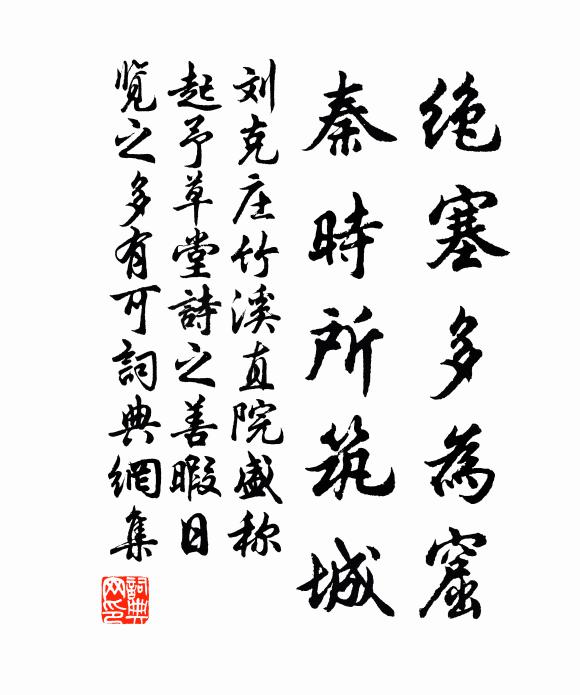 绝塞多為窟
秦時所筑城
刘克庄竹溪直院盛称
起予草堂詩之善暇日
览之多有可詞典網集
詞典
网印